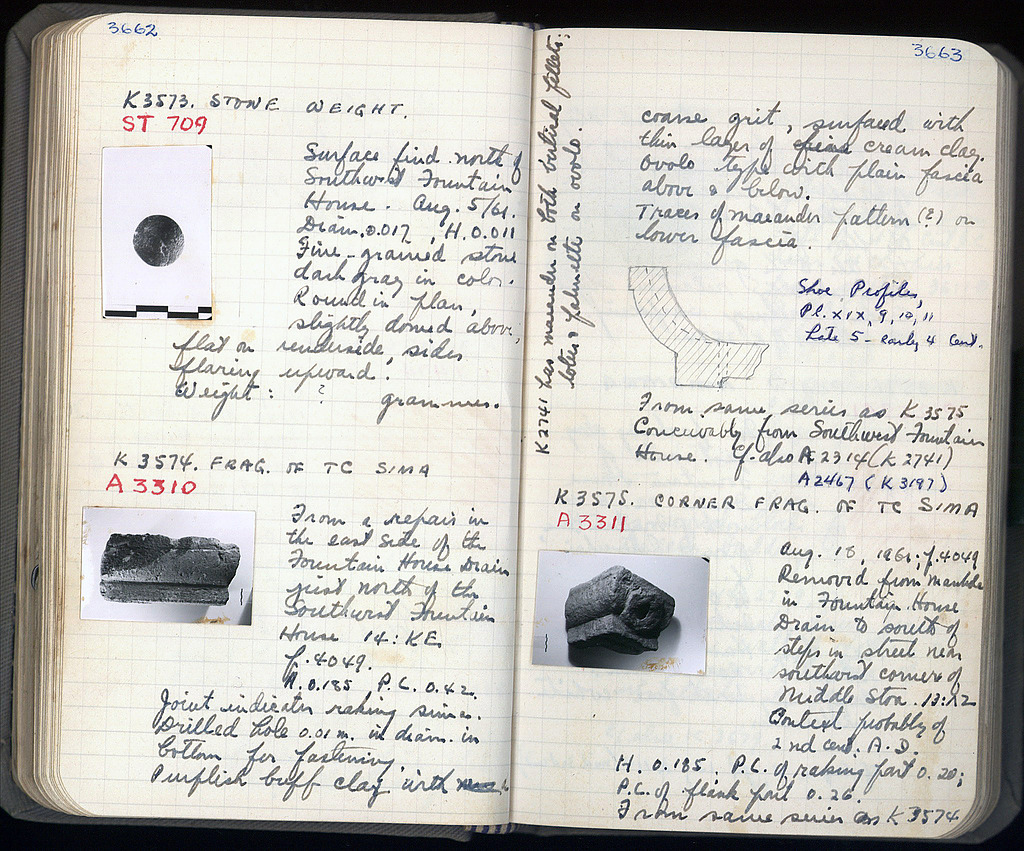 3662
K 3573. STONE WEIGHT.
ST 709
Surface find north of
Southwest Fountain
House. Aug. 5/61.
Diam. 0.017, H. 0.011
Fine-grained stone
dark gray in color.
Round in plan,
slightly domed above,
flat on underside, sides
flaring upward.
Weight: ? grammes.
K 3574. FRAG. OF TC SIMA
A 3310
From a repair in
the east side of the
Fountain House Drain
just north of the
Southwest Fountain
House 14: KE
p. 4049.
H. 0.185 P.L. 0.42.
Joint indicates raking sima.
Drilled hole 0.01 m. in diam. in
bottom for fastening.
Purplish buff clay with
K 2741 has maeander on both vertical fillets;
lotus & palmette on ovolo.
3663
coarse grit, surfaced with
thin layer of cream clay.
Ovolo type with plain fascia
above & below.
Traces of maeander pattern (?) on
lower fascia.
Shoe, Profiles,
Pl. XIX, 9, 10, 11
Late 5 - early 4 cent.
From same series as K 3575
Conceivably from Southwest Fountain
House. Cf. also A 2314 (K 2741)
A 2467 (K 3197)
K 3575. CORNER FRAG. OF TC SIMA
A 3311
Aug. 18, 1961; p. 4049
Removed from manhole
in Fountain House
Drain to south of
steps in street near
southwest corner of
Middle Stoa.
Context probably of
2nd cent. A.D.
H. 0.185, P.L. of raking part 0.20;
P.L. of flank part 0.26.
From same series as K 3574